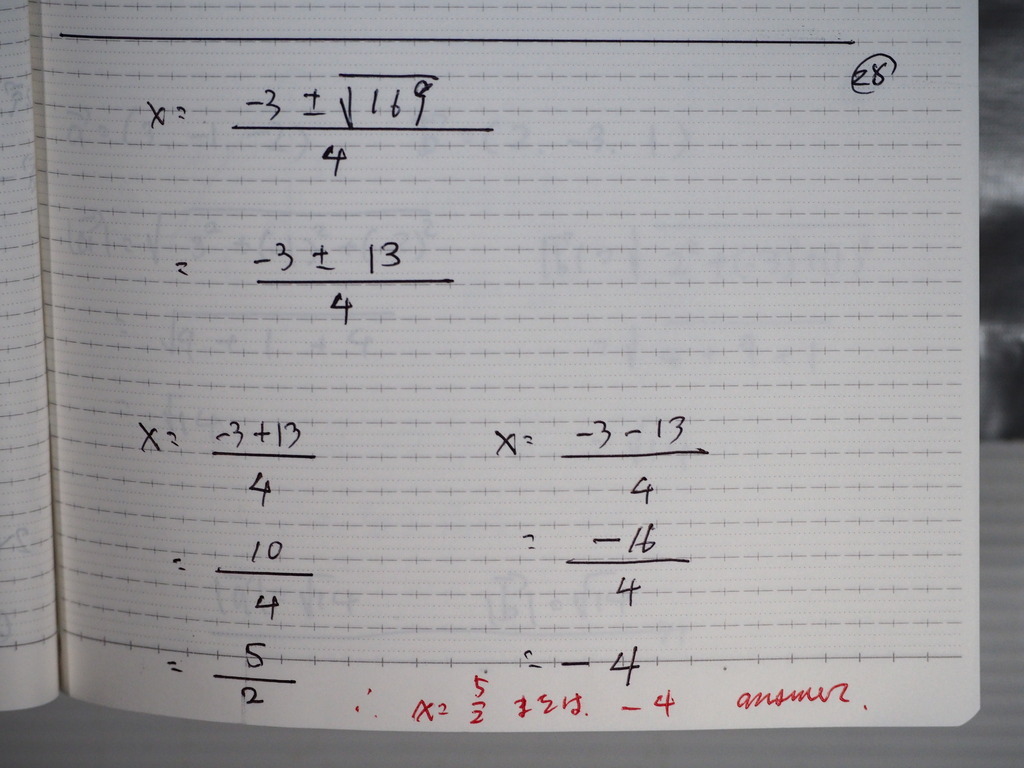 28
x = (-3 ± √169) / 4
= (-3 ± 13) / 4
x = (-3+13) / 4
= 10 / 4
= 5 / 2
x = (-3-13) / 4
= -16 / 4
= -4
∴ x = 5/2 または -4 answer.